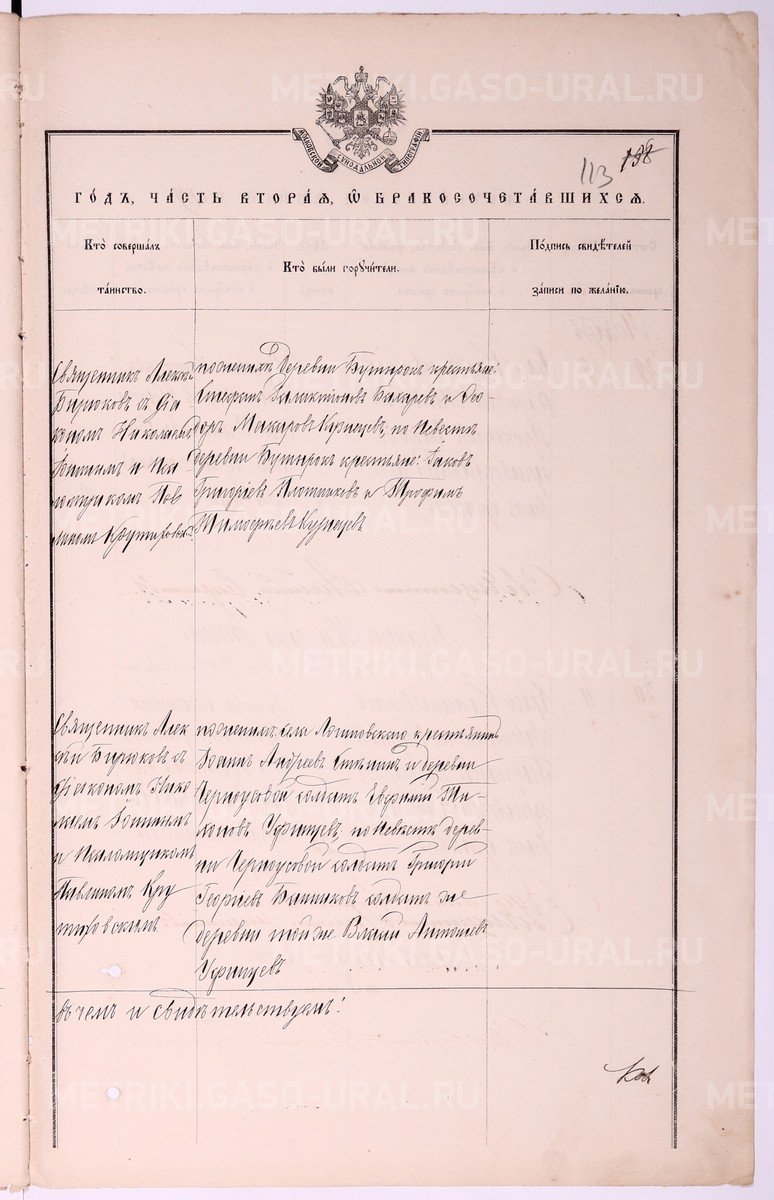 METRIKI.GASO-URAL.RU
МОСКОВСКОЙ СѴНОДАЛЬНОЙ ТИПОГРАФІИ
113 198
ГО́ДЪ, ЧА́СТЬ ВТОРА́Я, Ѡ БРАКОСОЧЕТА́ВШИХСЯ.
Кто̀ соверша́лъ
та́инство.
Кто̀ бы́ли порꙋчи́тели.
По́дпись свидѣ́телей
за́писи по жела́нїю.
Священникъ Алексѣй
Бирюковъ съ діа
кономъ Николаемъ
и пса
ломщикомъ Пав
линомъ Крутиховск
по женихѣ деревни Бутырокъ крестьяне:
Стефанъ Бахаревъ и Ѳео
доръ Макаровъ Кузнецевъ; по невѣстѣ
деревни Бутырокъ крестьяне: Іаковъ
Григоріевъ Плотниковъ и Трофимъ
Тимофеевъ Кузнецевъ
Священникъ Алек
сѣй Бирюковъ съ
діакономъ Нико
лаемъ
и псаломщикомъ
Павлиномъ Кру
тиховскимъ
по женихѣ села Логиновскаго крестьянинъ
Іоаннъ Андреевъ и деревни
Черноусовой солдатъ Евфимій Ти-
хоновъ Уфинцевъ, по невѣстѣ дерев-
ни Черноусовой солдатъ Григорій
Георгіевъ солдатъ же
деревни той же Антоніевъ
Уфинцевъ
въ чемъ и свидѣтельствуемъ: